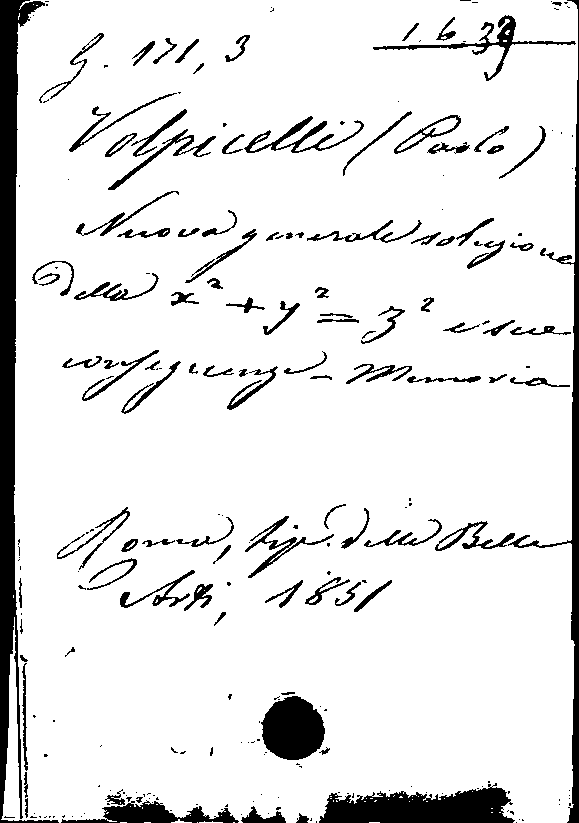 G. 171, 3
1. 6. 39
Volpicelli (Paolo)
Nuova generale soluzione
della x² + y² = z² e sue
conseguenze - Memoria
Roma, tip. delle Belle
Arti, 1851